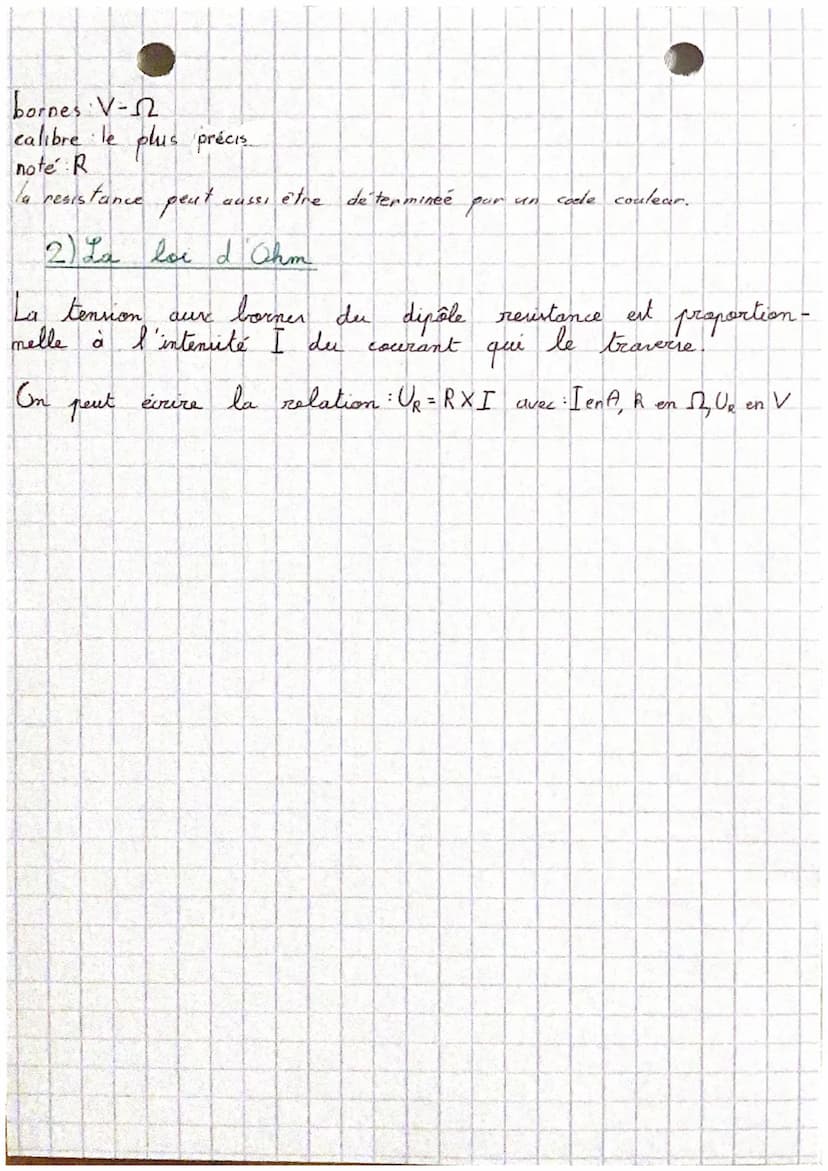 bornes : V-Ω
calibre : le plus précis
noté : R
la resistance peut aussi être determineé par un code couleur.
2) La loi d'Ohm
La tension aux bornes du dipôle resistance est proportion-
nelle à l'intensité I du courant qui le traverse.
On peut écrire la relation : U_R = R X I avec : I en A, R en Ω, U_R en V